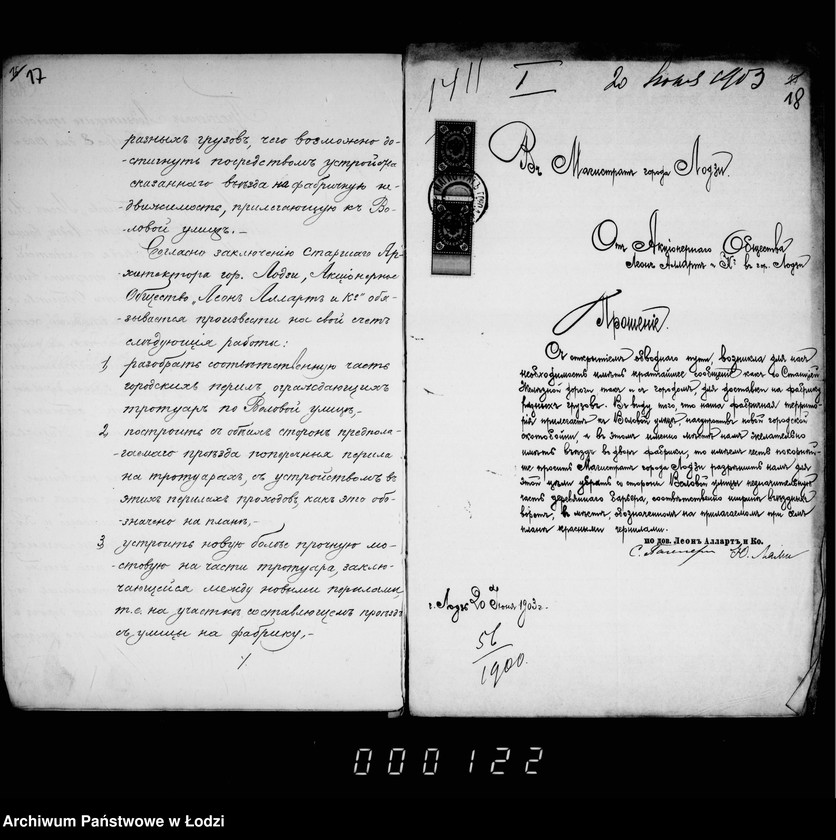 17
разныхъ грузовъ, чего возможно до-
-стигнуть посредствомъ устройства
сказаннаго въѣзда на фабричную не-
-движимость, прилегающую къ Во-
-ловой улицѣ.-
Согласно заключенію Старшаго Ар-
-хитектора гор. Лодзи, Акціонерное
Общество „Леонъ Аллартъ и Кº" обя-
-зывается произвести на свой счетъ
слѣдующія работы:
1, разобрать соотвѣтственную часть
городскихъ перилъ ограждающихъ
тротуаръ по Воловой улицѣ,-
2 построить съ обѣихъ сторонъ предпола-
-гаемаго проѣзда поперечныя перила
на тротуарахъ, съ устройствомъ въ
этихъ перилахъ проходовъ, какъ это обо-
-значено на планѣ,-
3, устроить новую болѣе прочную мо-
-стовую на части тротуара, заклю-
-чающейся между новыми перилами,
т.е. на участкѣ составляющемъ проѣздъ
съ улицы на фабрику.-
1411 I 20 Іюня 1903
18
Въ Магистратъ города Лодзи.
Отъ Акціонернаго Общества
Леонъ Аллартъ и Кº въ гор. Лодзи
Прошеніе.
Съ открытіемъ обводнаго пути, возникла для насъ
необходимость имѣть кратчайшее сообщеніе какъ со Станціей
Желѣзной дороги такъ и съ городомъ, для доставки на фабрику
разныхъ грузовъ. Въ виду того что наша фабричная террито-
рія прилегаетъ къ Воловой улицѣ, насупротивъ новой городской
скотобойни, и въ этомъ именно мѣстѣ намъ желательно
имѣть въѣздъ въ дворъ фабрики, то имѣемъ честь покорнѣй-
ше просить Магистратъ города Лодзи разрѣшить намъ для
этой цѣли убрать со стороны Воловой улицы незначительную
часть деревяннаго барьера, соотвѣтственно ширинѣ въѣздныхъ
воротъ, въ мѣстѣ, обозначенномъ на прилагаемомъ при семъ
планѣ красными чернилами.
по дов. Леонъ Аллартъ и Ко.
г. Лодзь 20 Іюня 1903 г.
56
1900.
000122
Archiwum Państwowe w Łodzi